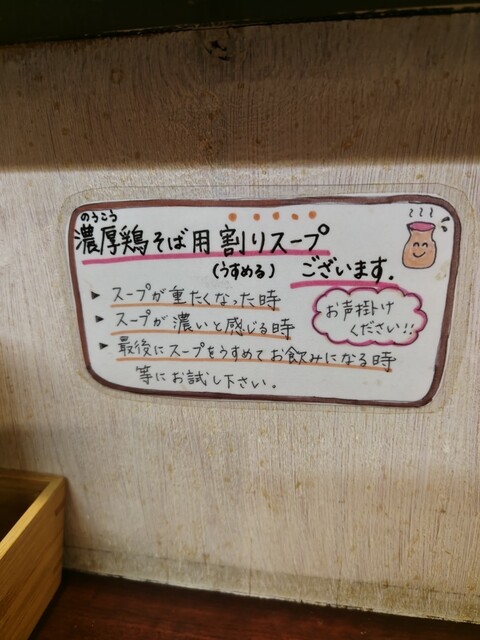 のうこう
濃厚鶏そば用割りスープ
(うすめる)
ございます.
▶ スープが重たくなった時
▶ スープが濃いと感じる時
▶ 最後にスープをうすめてお飲みになる時
等にお試し下さい.
お声掛け
ください!!